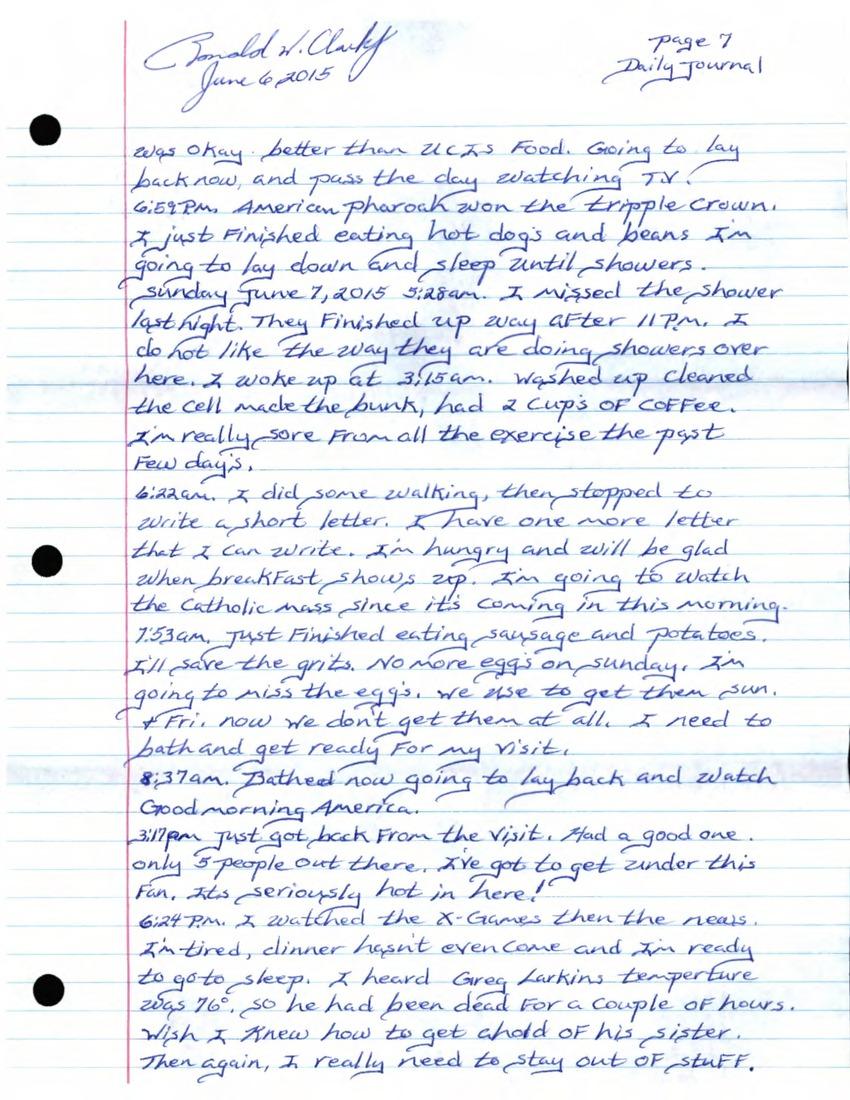 Ronald W. Clark Jr
page 7
June 6, 2015
Daily Journal
was okay. better than UCIs Food. Going to lay
back now, and pass the day watching T.V.
6:59 P.M. American pharoah won the tripple crown.
I just Finished eating hot dog's and beans I'm
going to lay down and sleep until showers.
Sunday June 7, 2015 5:28am. I missed the shower
last night. They Finished up way after 11 P.M. I
do not like the way they are doing showers over
here. I woke up at 3:15am. Washed up cleaned
the cell made the bunk, had 2 cup's OF COFFee.
I'm really sore From all the exercise the past
Few day's.
6:22am. I did some walking, then stopped to
write a short letter. I have one more letter
that I can write. I'm hungry and will be glad
when breakFast shows up. I'm going to watch
the Catholic mass since it's coming in this morning.
7:53am. Just Finished eating sausage and potatoes.
I'll save the grits. No more egg's on sunday. I'm
going to miss the egg's. We use to get them sun.
& Fri. now we don't get them at all. I need to
bath and get ready For my visit.
8:37am. Bathed now going to lay back and watch
Good morning America.
3:17pm Just got back From the visit. Had a good one.
only 5 people out there. I've got to get under this
Fan. Its seriously hot in here!
6:24 P.M. I watched the X-Games then the news.
I'm tired, dinner hasn't even come and I'm ready
to go to sleep. I heard Greg Larkins temperture
was 76°. so he had been dead For a couple of hours.
Wish I Knew how to get ahold of his sister.
Then again, I really need to stay out OF stuFF.